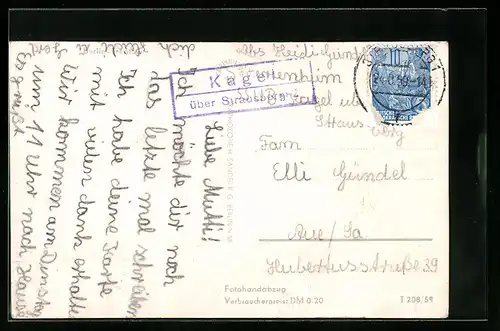 Liebe Mutti!
Ich möchte dir noch
das letzte mal schreiben
Ich habe deine Karte
mit vielen dank erhalten
Wir kommen am Dienstag
um 11 Uhr nach Hause
Es grüßt
dich
Abs. Heidi Gündel
Kagel
über Strausberg
Fam
Elli Gündel
Aue/Sa.
Hubertusstraße 39
Fotohandabzug
Verbraucherpreis: DM 0.20
T 208/59